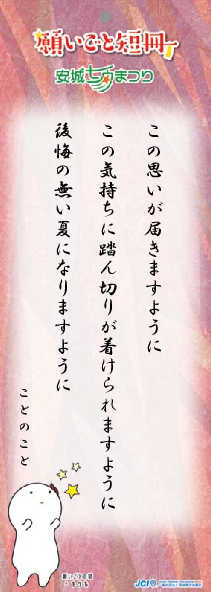 願いごと短冊
安城七夕まつり
この思いが届きますように
この気持ちに踏ん切りが着けられますように
後悔の無い夏になりますように
ことのこと
願いごと短冊
JCI